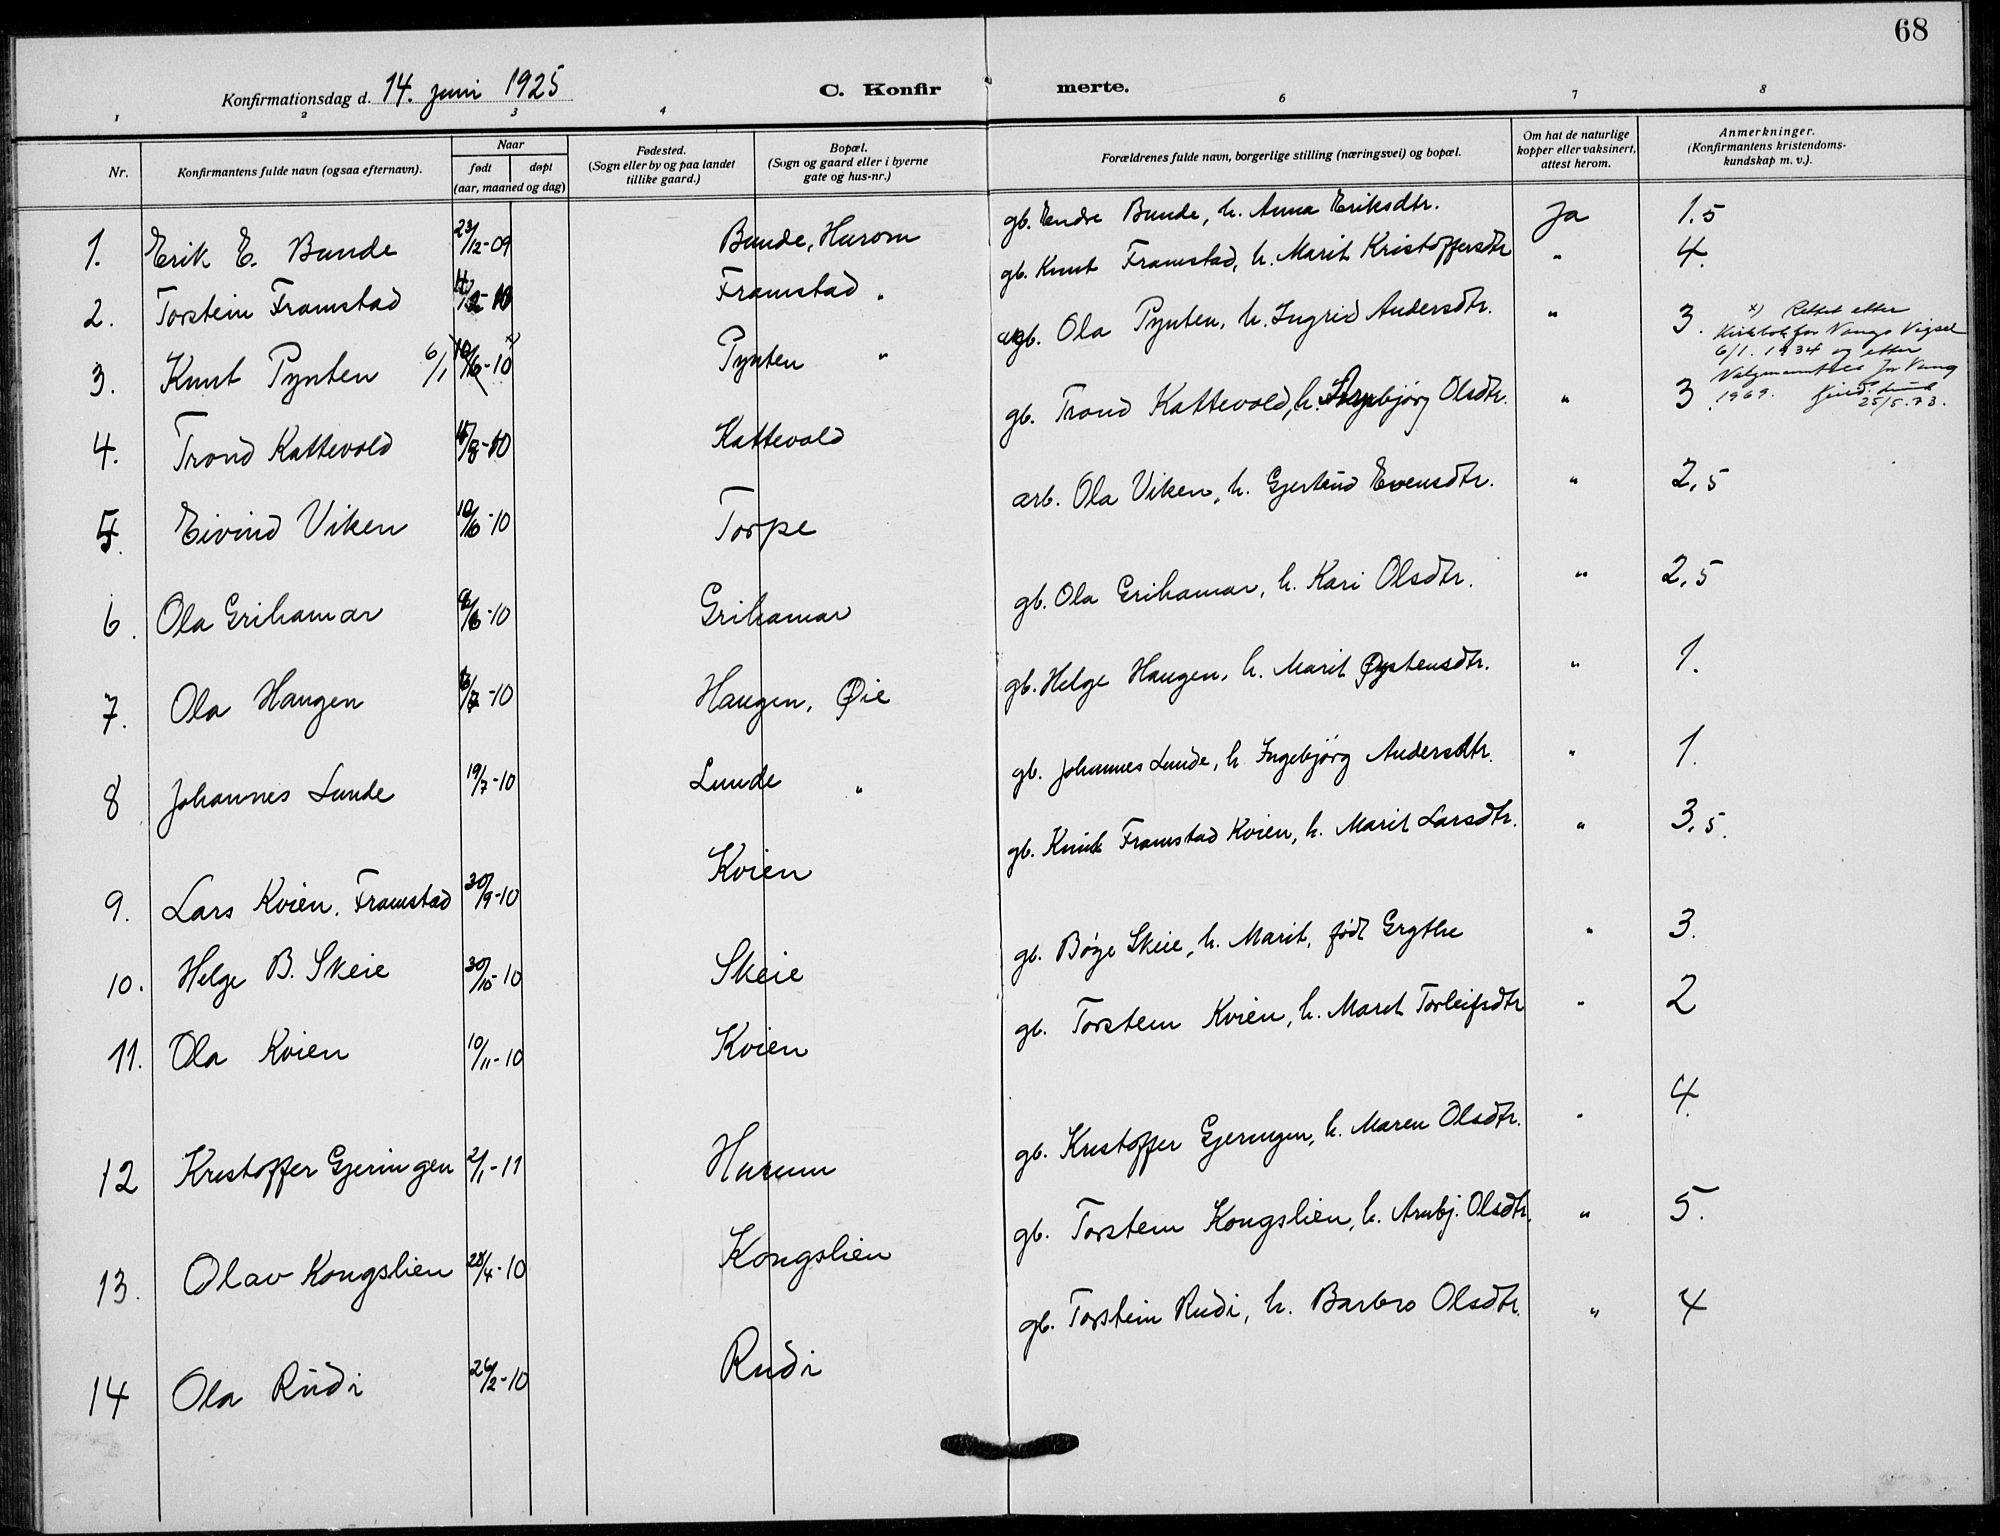 68
Konfirmationsdag d. 14. juni 1925 C. Konfir merte.
1 2 3 4 6 7 8
Nr. Konfirmantens fulde navn (ogsaa efternavn). Naar født døpt (aar, maaned og dag) Fødested. (Sogn eller by og paa landet tillike gaard.) Bopæl. (Sogn og gaard eller i byerne gate og hus-nr.) Forældrenes fulde navn, borgerlige stilling (næringsvei) og bopæl. Om hat de naturlige kopper eller vaksinert, attest herom. Anmerkninger. (Konfirmantens kristendoms-kundskap m. v.).
1. Erik E. Bunde 23/12-09 Bunde, Hurom gb. Endre Bunde, h. Anna Eriksdtr. Ja 1.5
2. Torstein Framstad Framstad " gb. Knut Framstad, h. Marit Kristoffersdtr " 4.
3. Knut Pynten 6/1 10/6-10 x) Pynten " gb. Ola Pynten, h. Ingrid Andersdtr. " 3. x) Rettet etter
Kirkebok for Vangs Vigsel
6/1. 1934 og etter
for Vang
1969.
25/5.73.
4. Trond Kattevold /8-10 Kattevold gb. Trond Kattevold, h. Olsdtr. " 3.
5. Eivind Viken 10/6-10 Torpe arb. Ola Viken, h. Gjertrud Evensdtr. " 2,5
6. Ola Grihamar /6-10 Grihamar gb. Ola Grihamar, h. Kari Olsdtr. " 2,5
7. Ola Haugen /7-10 Haugen, Øie gb. Helge Haugen, h. Marit Øystensdtr. " 1.
8 Johannes Lunde 19/7-10 Lunde " gb. Johannes Lunde, h. Ingebjørg Andersdtr. " 1.
9. Lars Kvien. Framstad 30/9-10 Kvien gb. Knut Framstad Kvien, h. Marit Larsdtr. " 3,5.
10. Helge B. Skeie 30/10-10 Skeie gb. Bøye Skeie, h. Marit, født Grythe " 3.
11. Ola Kvien 10/11-10 Kvien gb. Torstein Kvien, h. Marit Torleifsdtr " 2
12 Kristoffer Gjeringen 2/1-11 Hurum gb. Kristoffer Gjeringen, h. Maren Olsdtr. " 4.
13. Olav Kongslien 28/4-10 Kongslien gb. Torstein Kongslien, h. Arnbj. Olsdtr. " 5.
14 Ola Rudi 26/2-10 Rudi gb. Torstein Rudi, h. Barbro Olsdtr. " 4